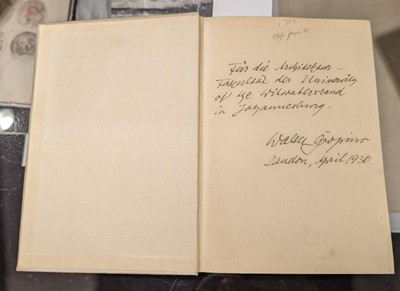 Für die Architektur-
Fakultät der University
of the Witwatersrand
in Johannesburg.
Walter Gropius
London, April 193